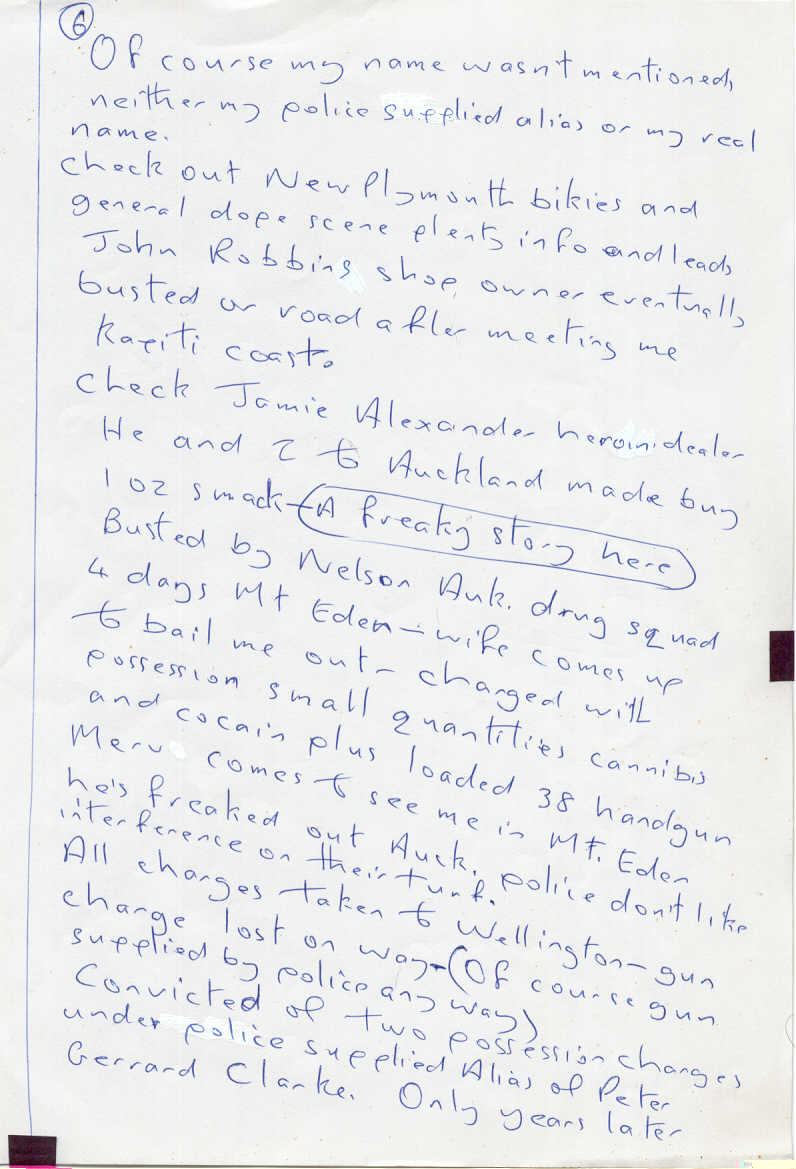 6
Of course my name wasn't mentioned,
neither my police supplied alias or my real
name.
check out New Plymouth bikies and
general dope scene plenty info and leads
John Robbins shop owner eventually
busted on road after meeting me
Kapiti coast.
check Jamie Alexander heroin dealer
He and I to Auckland made buy
1 oz smack - A freaky story here
Busted by Nelson Auk. drug squad
4 days Mt Eden - wife comes up
to bail me out - charged with
possession small quantities cannibis
and cocain plus loaded 38 handgun
Merv comes to see me in Mt. Eden
he's freaked out Auck. police don't like
interference on their turf.
All charges taken to Wellington - gun
charge lost on way - (Of course gun
supplied by police anyway)
Convicted of two possession charges
under police supplied Alias of Peter
Gerrard Clarke. Only years later